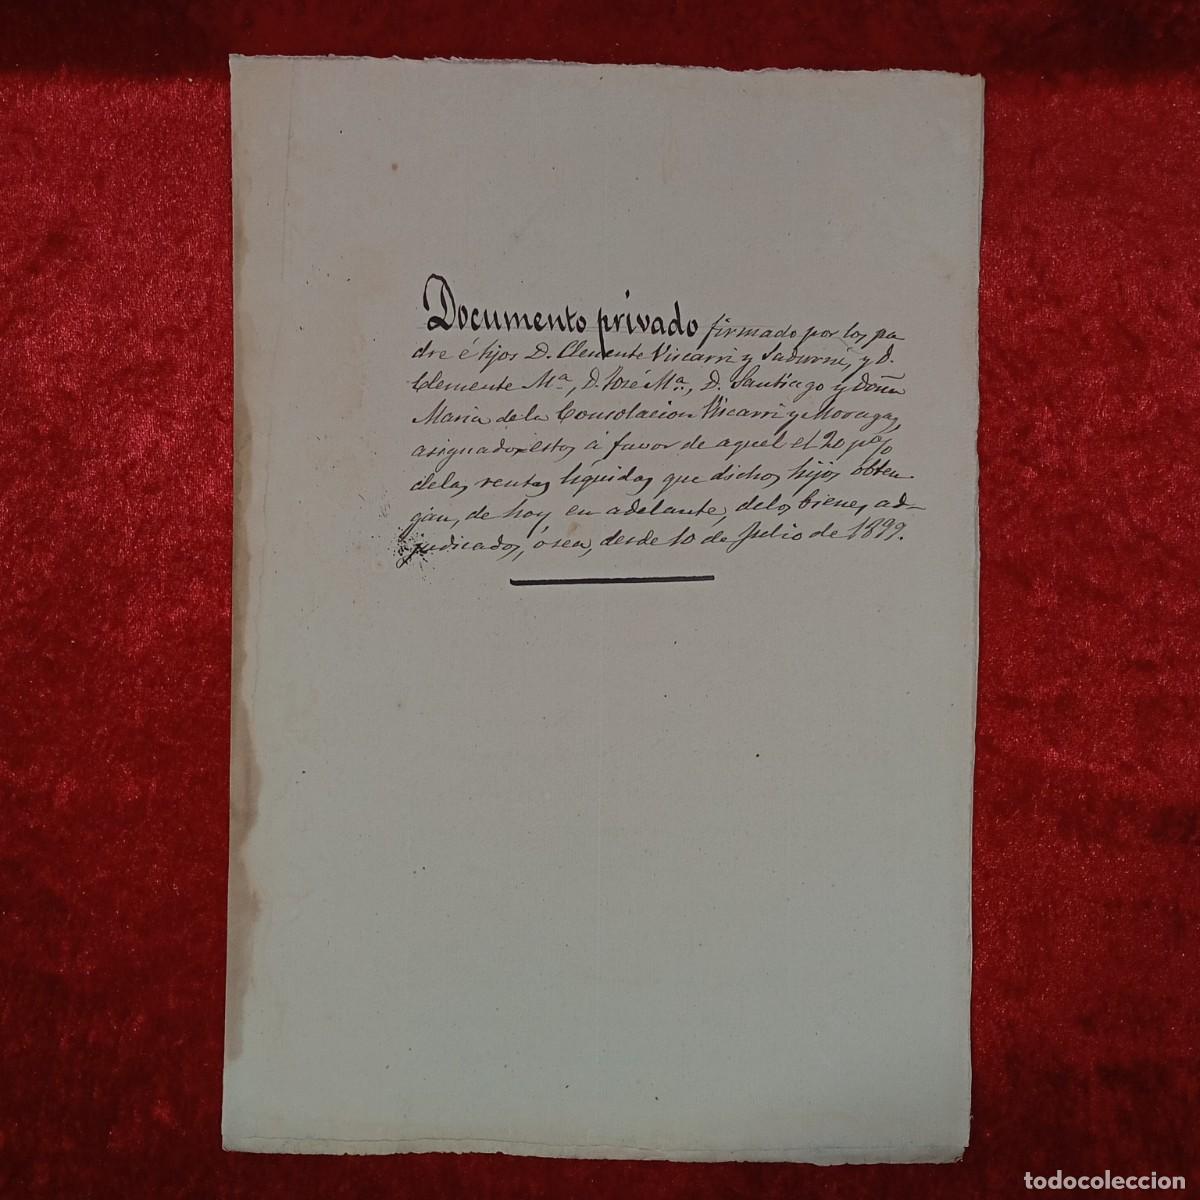 Documento privado firmado por los pa
dre é hijos D. Clemente Viscarri y Sadurní, y D.
Clemente Mª., D. José Mª., D. Santiago y Doña
Maria de la Consolacion Viscarri y Moragas,
asignados estos á favor de aquel el 20 p%
de las rentas líquidas que dichos hijos obten-
gan, de hoy en adelante, de los bienes ad-
judicados, ó sea, desde 10 de Julio de 1899.
todocoleccion